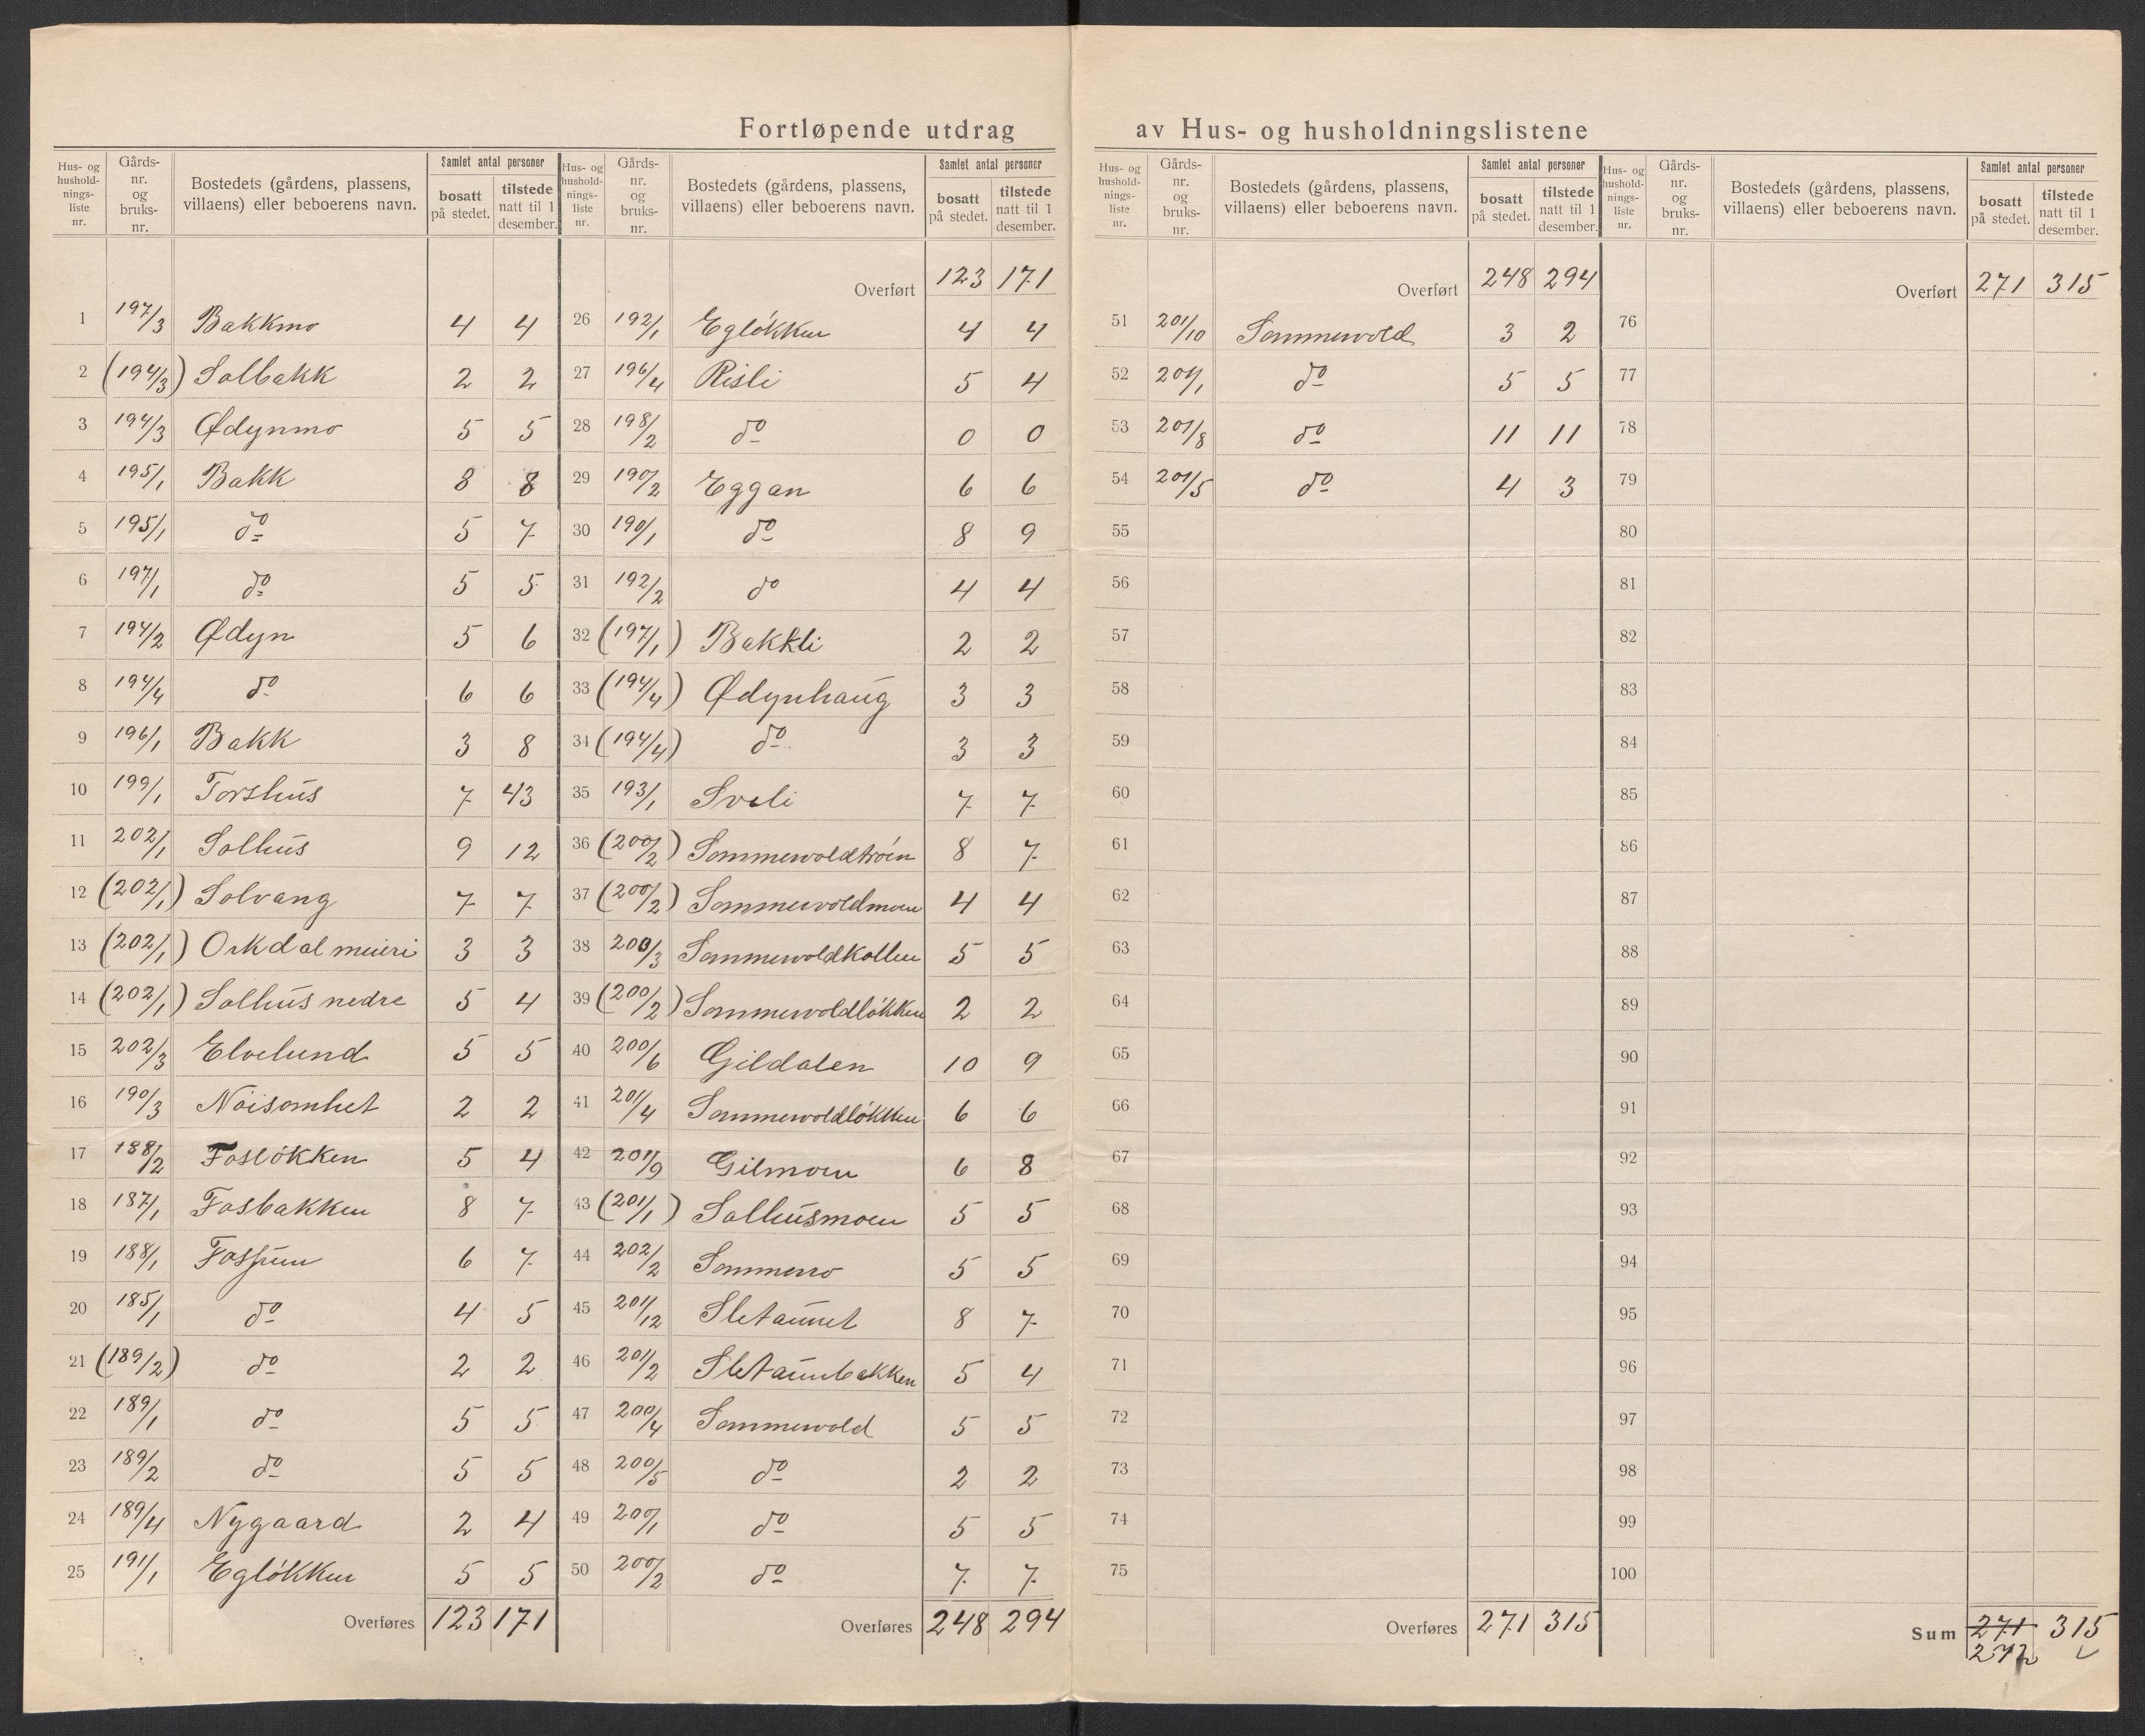 Fortløpende utdrag av Hus- og husholdningslistene
Hus- og hushold-nings-liste nr. | Gårds-nr. og bruks-nr. | Bostedets (gårdens, plassens, villaens) eller beboerens navn. | Samlet antal personer bosatt på stedet. | tilstede natt til 1 desember.
1 197/3 Bakkmo 4 4
2 (194/3) Solbakk 2 2
3 194/3 Ødynmo 5 5
4 195/1 Bakk 8 8
5 195/1 do 5 7
6 197/1 do 5 5
7 194/2 Ødyn 5 6
8 194/4 do 6 6
9 196/1 Bakk 3 8
10 199/1 Torshus 7 43
11 202/1 Solhus 9 12
12 (202/1) Solvang 7 7
13 (202/1) Orkdal meieri 3 3
14 (202/1) Solhus nedre 5 4
15 202/3 Elvelund 5 5
16 190/3 Nøisomhet 2 2
17 188/2 Fosløkken 5 4
18 187/1 Fosbakken 8 7
19 188/1 Fossum 6 7
20 185/1 do 4 5
21 (189/2) do 2 2
22 189/1 do 5 5
23 189/2 do 5 5
24 189/4 Nygaard 2 4
25 191/1 Egløkken 5 5
Overføres 123 171
Hus- og hushold-nings-liste nr. | Gårds-nr. og bruks-nr. | Bostedets (gårdens, plassens, villaens) eller beboerens navn. | Samlet antal personer bosatt på stedet. | tilstede natt til 1 desember.
Overført 123 171
26 192/1 Egløkken 4 4
27 196/4 Risli 5 4
28 198/2 do 0 0
29 190/2 Eggan 6 6
30 190/1 do 8 9
31 192/2 do 4 4
32 (197/1) Bakkli 2 2
33 (194/4) Ødynhaug 3 3
34 (194/4) do 3 3
35 193/1 Sveli 7 7
36 (200/2) Sommervoldtrøen 8 7
37 (200/2) Sommervoldmoen 4 4
38 200/3 Sommervoldkollen 5 5
39 (200/2) Sommervoldløkken 2 2
40 200/6 Gildalen 10 9
41 201/4 Sommervoldløkken 6 6
42 201/9 Gilmoen 6 8
43 (201/1) Solhusmoen 5 5
44 202/2 Sommerro 5 5
45 201/12 Sletaunet 8 7
46 201/2 Sletaunbakken 5 4
47 200/4 Sommervold 5 5
48 200/5 do 2 2
49 200/1 do 5 5
50 200/2 do 7 7
Overføres 248 294
Hus- og hushold-nings-liste nr. | Gårds-nr. og bruks-nr. | Bostedets (gårdens, plassens, villaens) eller beboerens navn. | Samlet antal personer bosatt på stedet. | tilstede natt til 1 desember.
Overført 248 294
51 201/10 Sommervold 3 2
52 201/1 do 5 5
53 201/8 do 11 11
54 201/5 do 4 3
55
56
57
58
59
60
61
62
63
64
65
66
67
68
69
70
71
72
73
74
75
Overføres 271 315
Hus- og hushold-nings-liste nr. | Gårds-nr. og bruks-nr. | Bostedets (gårdens, plassens, villaens) eller beboerens navn. | Samlet antal personer bosatt på stedet. | tilstede natt til 1 desember.
Overført 271 315
76
77
78
79
80
81
82
83
84
85
86
87
88
89
90
91
92
93
94
95
96
97
98
99
100
Sum 271 315